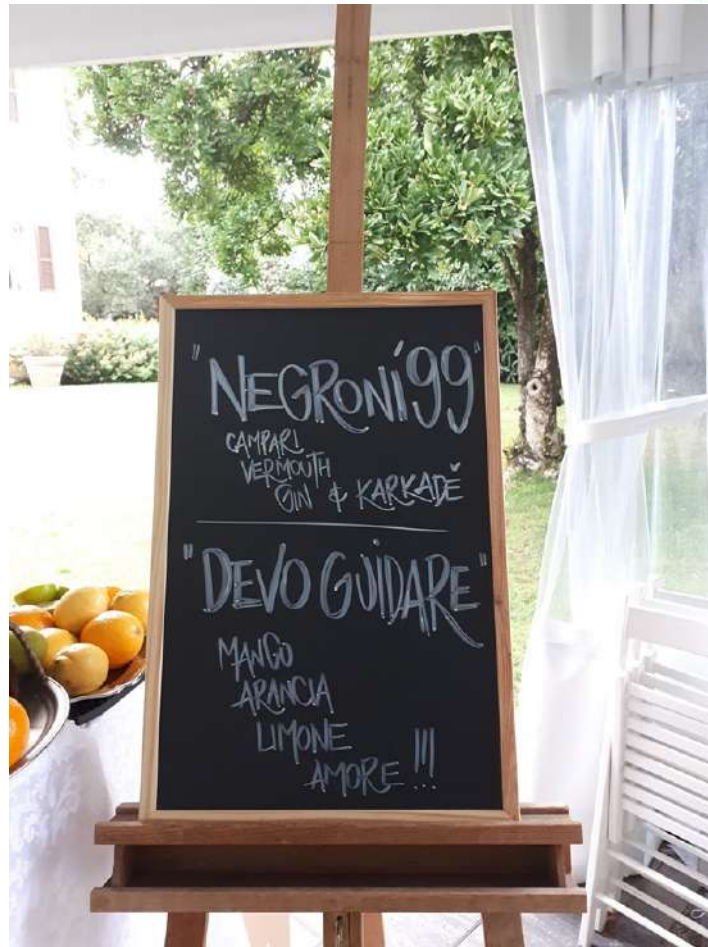 "NEGRONI99"
CAMPARI
VERMOUTH
GIN & KARKADĔ
"DEVO GUIDARE"
MANGO
ARANCIA
LIMONE
AMORE !!!